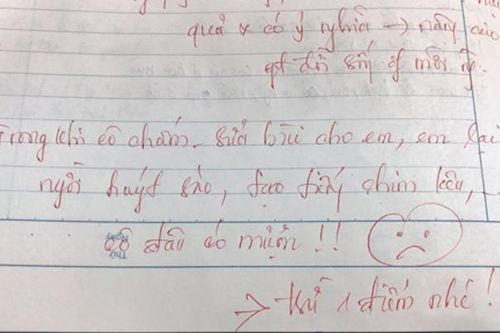 quả & có ý nghĩa → nâng cao
gt đời sống of mỗi ng.
Trong khi cô chấm - sửa bài cho em, em lại
ngồi huýt sáo, tạo tiếng chim kêu,
Cô đâu có muộn !!
→ trừ 1 điểm nhé !